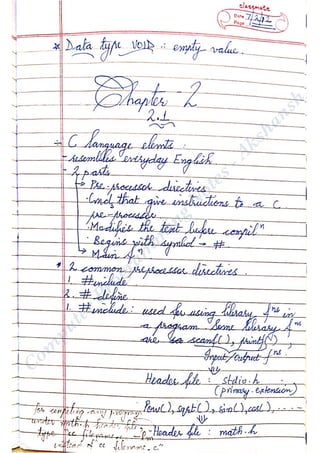 classmate
Date 7/2/12
Page
* Data type VOID : empty value.
Chapter - 2
2.1
÷ C language elemts :
- resembles everyday English.
- 2 parts
↳ Pre-processor directives
· Cmds that give instructions to a C
pre-processor.
· Modifies the text before compilⁿ
· Begins with symbol → #.
↳ Main fⁿ
* 2 common preprocessor directives.
1. #include
2. # define
1. #include : used for using library fⁿˢ in
a program. Some library fⁿˢ
are scanf(), printf()
Input/output fⁿˢ
Header file : stdio.h
(primary extension)
Pow(), sqrt(), sin(), cos(), - - - -
Header file : math.h
for compiling any program
under math.h header file
type "cc filename.c -lm"
instead of "cc filename.c"
Computer Programming Notes - Akshansh